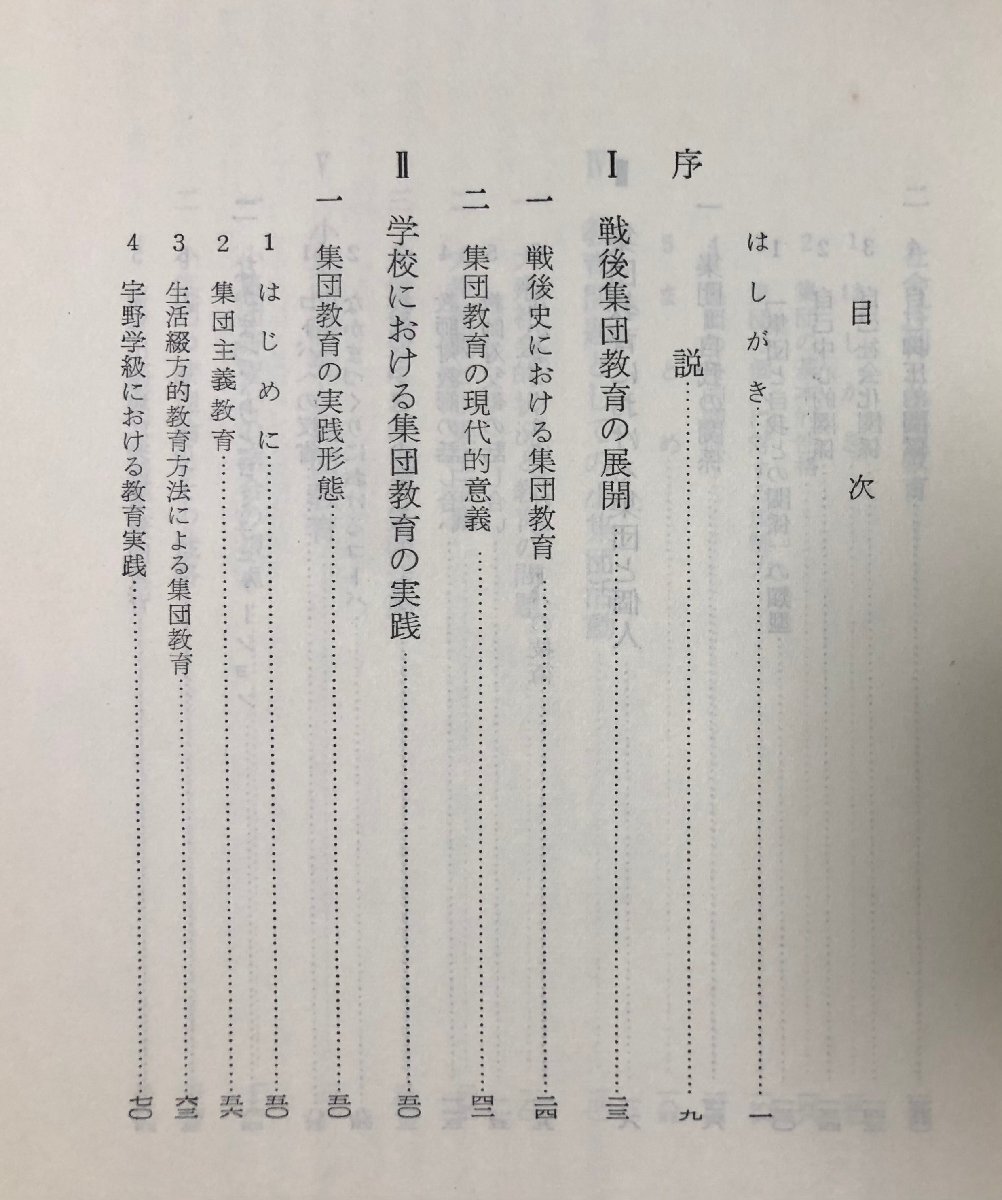 目次
はしがき……一
序説……九
Ⅰ 戦後集団教育の展開……二三
一 戦後史における集団教育……二四
二 集団教育の現代的意義……四二
Ⅱ 学校における集団教育の実践……五〇
一 集団教育の実践形態……五〇
1 はじめに……五〇
2 集団主義教育……五六
3 生活綴方的教育方法による集団教育……六三
4 宇野学級における教育実践……七〇